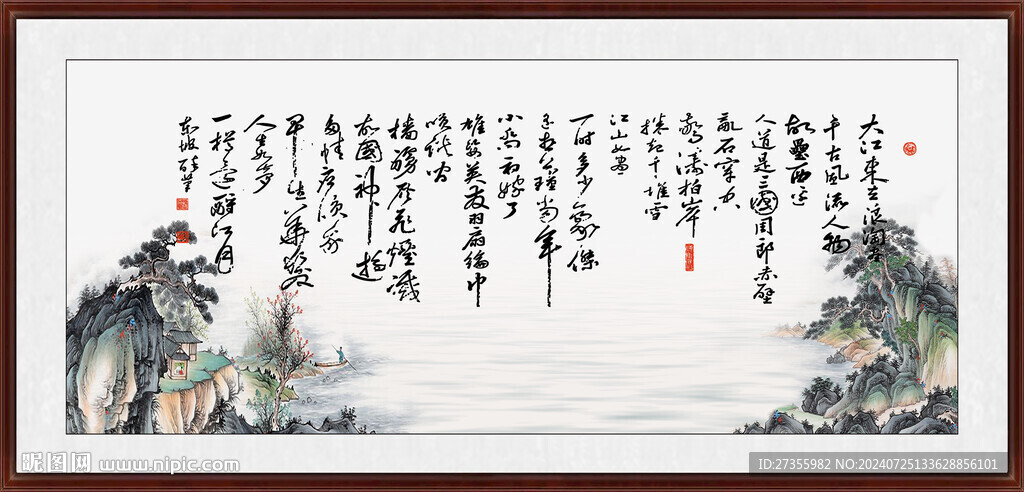 大江東去浪淘盡
千古風流人物
故壘西邊
人道是三國周郎赤壁
亂石穿空
驚濤拍岸
捲起千堆雪
江山如畫
一时多少豪傑
遙想公瑾當年
小喬初嫁了
雄姿英發羽扇綸巾
談笑間
檣櫓灰飛煙滅
故國神遊
多情應笑我
早生華髮
人如夢
一樽還酹江月
東坡
昵图网 www.nipic.com
ID:27355982 NO:20240725133628856101